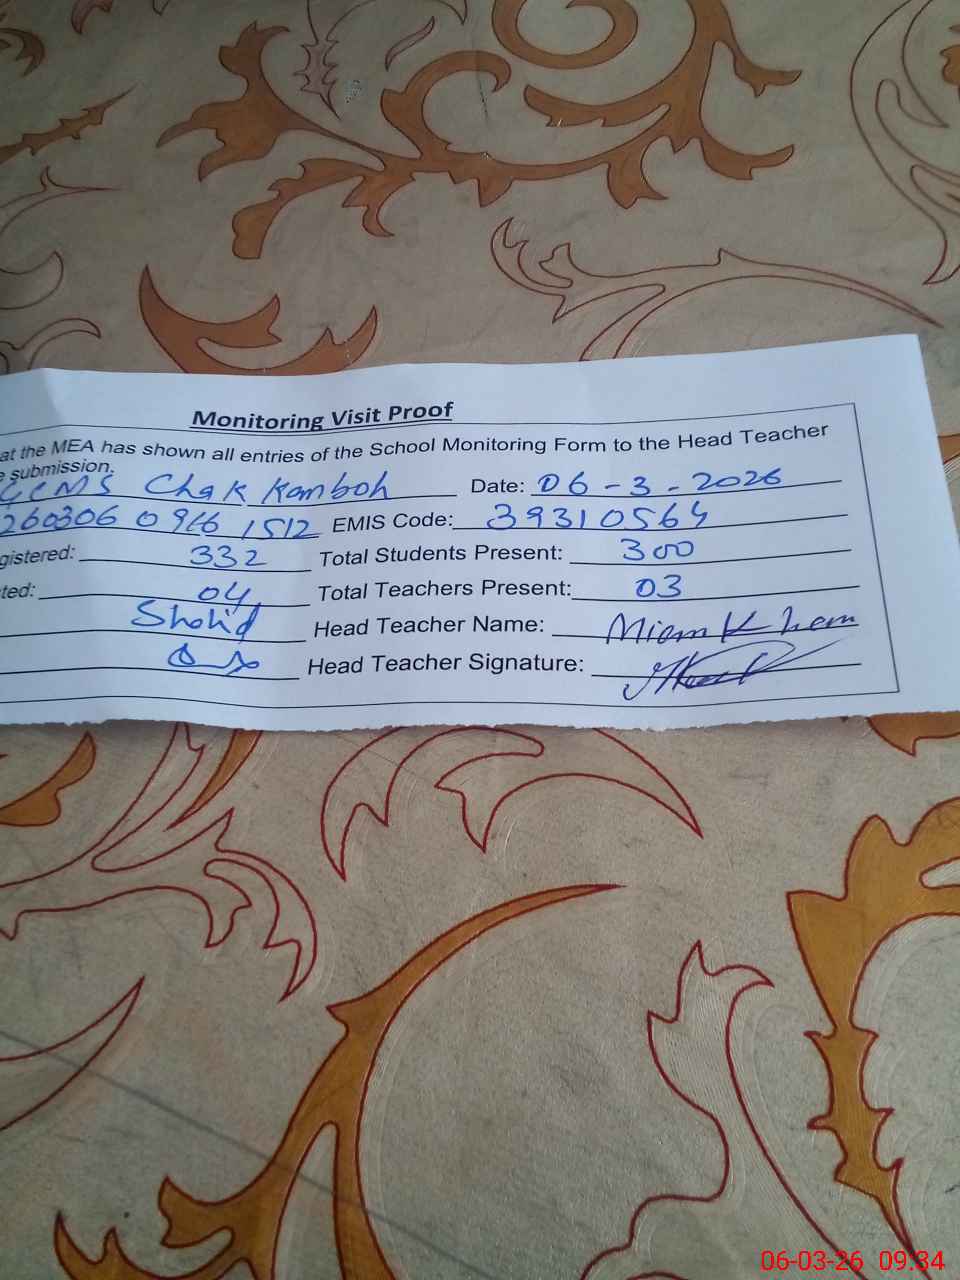 Monitoring Visit Proof
at the MEA has shown all entries of the School Monitoring Form to the Head Teacher
submission.
Chak Kamboh Date: 06-3-2026
EMIS Code: 39310564
gistered: 332 Total Students Present: 300
ted: 04 Total Teachers Present: 03
Head Teacher Name:
Head Teacher Signature:
06-03-26 09:34